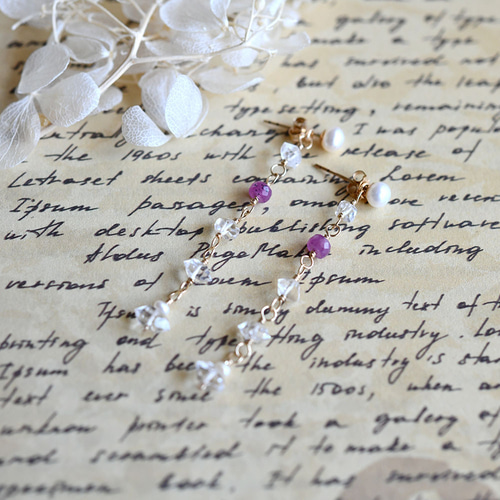 galery of type
make a type
has survived not
but also the lea
typesetting, remaining
chang I was popul
the 1960s with release of
Letraset sheets containing Lorem
Ipsum passages, and more recen
with desktop publishing software
Aldus PageMa including
versions of Lorem Ipsum
Ips is simply dummy text of t
printing and type ting industry. Lo
Ipsum has bee the industry's sta
text ever since the 1500s, when a
unknown printer took a galery of
and scrambled it to make a t
specimen book. It has survived